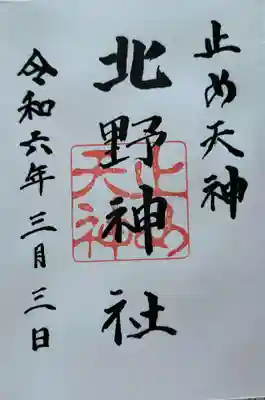 止め天神
北野神社
止め
天神
令和六年三月三日